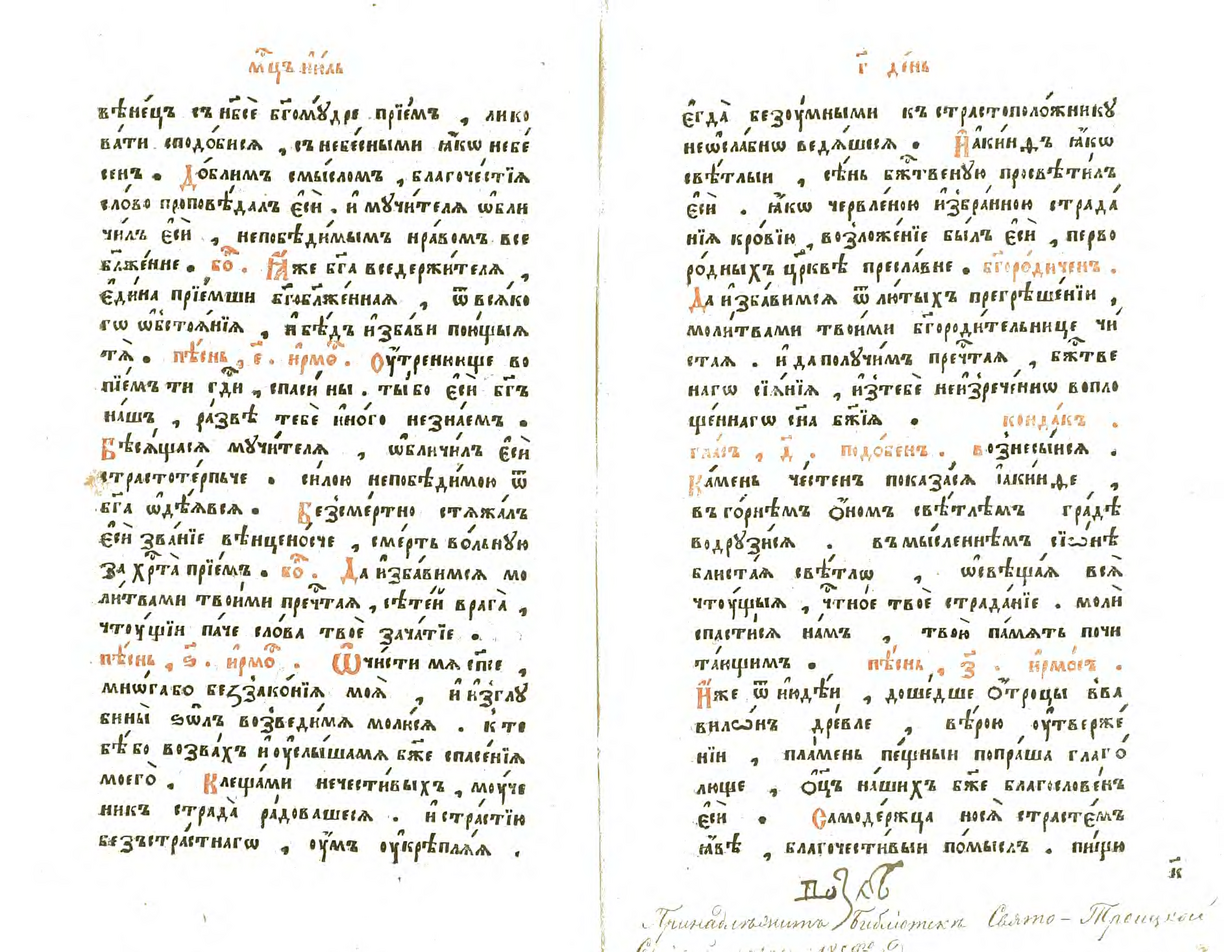 мц҃ъ їю́ль
вѣне́цъ съ нб҃сѐ бг҃ому́дре прїе́мъ , лико
ва́ти сподо́бисѧ , съ небе́сными ꙗ҆́кѡ небе́
сенъ . До́блимъ смы́сломъ , благоче́стїѧ
сло́во проповѣ́далъ є҆сѝ . и҆ мꙋчи́телѧ ѡ҆бли
чи́лъ є҆сѝ , непобѣди́мымъ нра́вомъ все
бл҃же́нне . бо҃ . Ꙗ҆́же бг҃а вседержи́телѧ ,
є҆ди́на прїе́мши бг҃обл҃же́ннаѧ , ѿ всѧ́ко
гѡ ѡ҆бстоѧ́нїѧ , и҆ бѣ́дъ и҆зба́ви пою́щыѧ
тѧ̀ . пѣ́снь , є҃ . і҆рмо́ . Оу҆́тренююще во
пїе́мъ ти гд҃и , спаси́ ны . ты́ бо є҆сѝ бг҃ъ
на́шъ , ра́звѣ тебѐ и҆но́го незна́емъ .
Бѣсѧ́щасѧ мꙋчи́телѧ , ѡ҆бличи́лъ є҆сѝ
страстоте́рпьче . си́лою непобѣди́мою ѿ
бг҃а ѡ҆дѣ́ѧвсѧ . Безсме́ртно стѧжа́лъ
є҆сѝ зва́нїе вѣнцено́сче , сме́рть во́льнꙋю
за хр҃та̀ прїе́мъ . бо҃ . Да и҆зба́вимсѧ мо
ли́твами твои́ми пречⷭ҇таѧ , сѣте́й врага̀ ,
чтꙋ́щїи па́че сло́ва твоѐ зача́тїе .
пѣ́снь , ѕ҃ . і҆рмо́ . Ѡ҆чи́сти мѧ сп҃се ,
мнѡ́га бо беззако́нїѧ моѧ̀ , и҆ и҆з̾глꙋ
бины̀ ѕѡ́лъ возведи́мѧ молю́сѧ . к̾ те
бѣ́ бо возва́хъ и҆ оу҆слы́шамѧ бж҃е спасе́нїѧ
моегѡ̀ . Клеща́ми нечести́выхъ , мꙋ́че
никъ страда̀ ра́довашесѧ . и҆ стра́стїю
безъстра́стнагѡ , оу҆́мъ оу҆крѣплѧ́ѧ .
г҃ де́нь
є҆гда̀ безоу́мными къ страстополо́жникꙋ
неѡ҆сла́бнѡ ведѧ́шесѧ . І҆аки́нѳъ ꙗ҆́кѡ
свѣ́тлыи , сѣ́нь бж҃твенꙋю просвѣти́лъ
є҆сѝ . ꙗ҆́кѡ червле́ною и҆збра́нною страда́
нїѧ кро́вїю , возложе́нїе бы́лъ є҆сѝ , перво
ро́дныхъ цр҃квѣ пресла́вне . бг҃оро́диченъ .
Да и҆зба́вимсѧ ѿ лю́тыхъ прегрѣше́нїи ,
моли́твами твои́ми бг҃ороди́тельнице чи́
стаѧ . и҆ да полꙋчи́мъ пречⷭ҇таѧ , бж҃тве
нагѡ сїѧ́нїѧ , и҆зтебѐ неизрече́ннѡ вопло
ще́ннагѡ сн҃а бж҃їѧ . конда́къ .
гла́съ , д҃ . подо́бенъ . вознесы́исѧ .
Ка́мень че́стенъ показа́сѧ і҆аки́нѳе ,
въ го́рнѣмъ ѻ҆́номъ свѣ́тлѣмъ гра́дѣ
водрꙋзи́сѧ . въ мы́сленнѣмъ сїѡ́нѣ
блиста́ѧ свѣ́тлѡ , ѡ҆свѣща́ѧ всѧ̀
чтꙋ́щыѧ , чⷭ҇тно́е твоѐ страда́нїе . молѝ
спасти́сѧ на́мъ , твою̀ па́мѧть почи
та́ющимъ . пѣ́снь , з҃ . і҆рмо́съ .
И҆́же ѿ і҆юдѣ́и , доше́дше ѻ҆́троцы в̾ва
вилѡ́нъ дре́вле , вѣ́рою оу҆тверже́
нїи , пла́мень пе́щныи попра́ша глаго́
люще , ѻ҆ц҃ъ на́шихъ бж҃е благослове́нъ
є҆сѝ . Самоде́ржца носѧ̀ страсте́мъ
ꙗ҆́вѣ , благочести́выи по́мыслъ . пи́щю
к҃
Принадлежитъ Библіотекѣ Свято-Троицкой